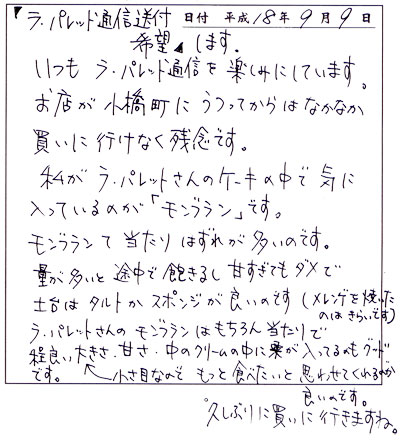 「ラ・パレット通信送付 日付 平成18年9月9日
希望」します。
いつも ラ・パレット通信を楽しみにしています。
お店が小橋町にうつってからはなかなか
買いに行けなく残念です。
私がラ・パレットさんのケーキの中で気に
入っているのが「モンブラン」です。
モンブランて当たりはずれが多いのです。
量が多いと途中で飽きるし甘すぎてもダメで
土台はタルトかスポンジが良いのです(メレンゲを焼いた
のはきらいです)
ラ・パレットさんのモンブランはもちろん当たりで
程良い大きさ、甘さ、中のクリームの中に栗が入ってるのもグード
です。 ←小さ目なので もっと食べたいと思わせてくれるのが
良いのです。
久しぶりに買いに行きますね。